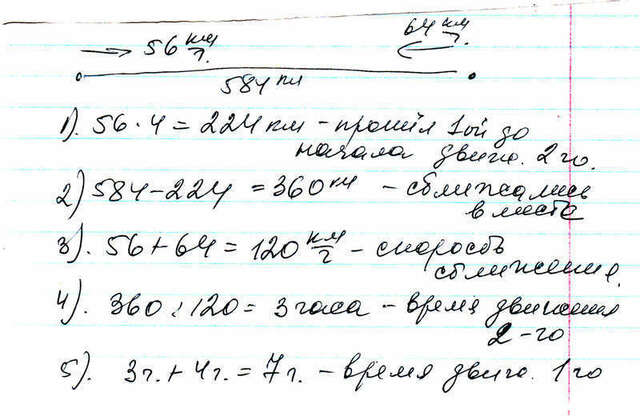 56 км/г. 64 км/г.
584 км
1). 56 · 4 = 224 км - прошёл 1ой до
начала движ. 2го.
2) 584 - 224 = 360 км - сближались
вместе
3). 56 + 64 = 120 км/г - скорость
сближения.
4). 360 : 120 = 3 часа - время движения
2-го
5). 3г. + 4г. = 7г. - время движ. 1го